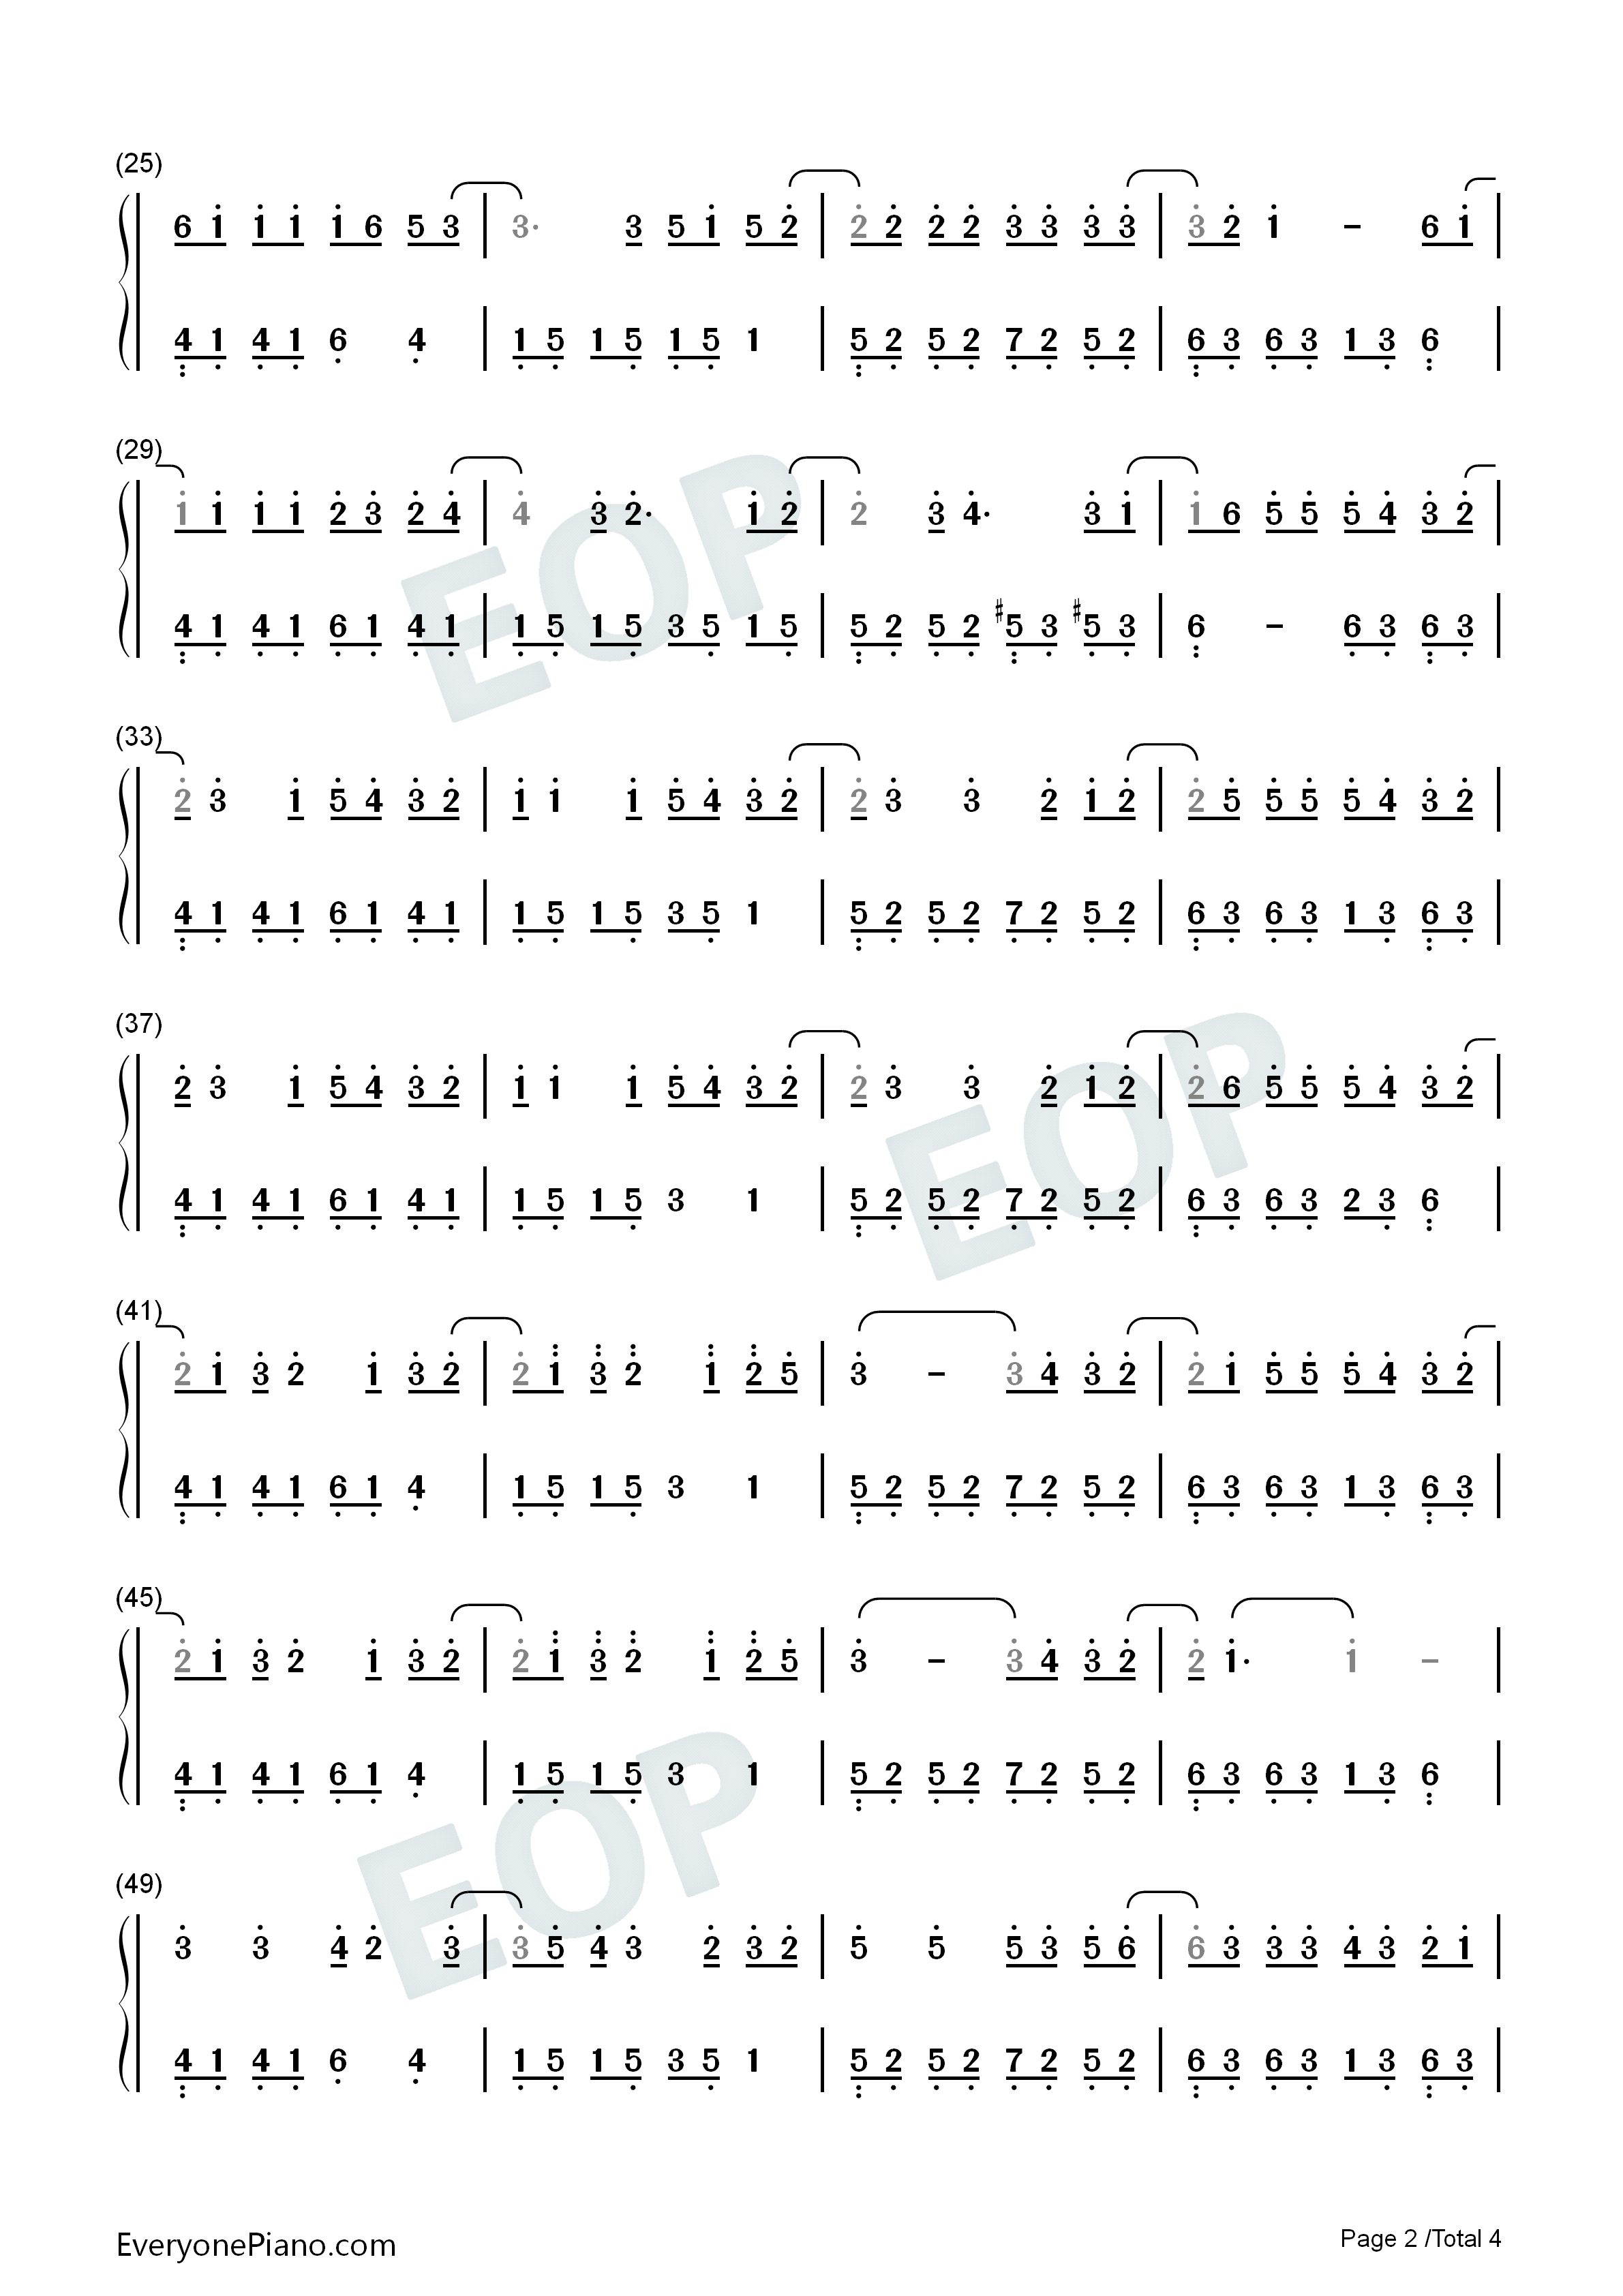 (25)
6 1̇ 1̇ 1̇ 1̇ 6 5 3 | 3· 3 5 1̇ 5 2̇ | 2̇ 2̇ 2̇ 2̇ 3̇ 3̇ 3̇ 3̇ | 3̇ 2̇ 1̇ – 6 1̇ |
4 1 4 1 6 4 | 1 5 1 5 1 5 1 | 5 2 5 2 7 2 5 2 | 6 3 6 3 1 3 6 |
(29)
EOP
1̇ 1̇ 1̇ 1̇ 2̇ 3̇ 2̇ 4̇ | 4̇ 3̇ 2̇· 1̇ 2̇ | 2̇ 3̇ 4̇· 3̇ 1̇ | 1̇ 6 5̇ 5̇ 5̇ 4̇ 3̇ 2̇ |
4 1 4 1 6 1 4 1 | 1 5 1 5 3 5 1 5 | 5 2 5 2 ♯5 3 ♯5 3 | 6 – 6 3 6 3 |
(33)
2̇ 3̇ 1̇ 5̇ 4̇ 3̇ 2̇ | 1̇ 1̇ 1̇ 5̇ 4̇ 3̇ 2̇ | 2̇ 3̇ 3̇ 2̇ 1̇ 2̇ | 2̇ 5̇ 5̇ 5̇ 5̇ 4̇ 3̇ 2̇ |
4 1 4 1 6 1 4 1 | 1 5 1 5 3 5 1 | 5 2 5 2 7 2 5 2 | 6 3 6 3 1 3 6 3 |
(37)
EOP
2̇ 3̇ 1̇ 5̇ 4̇ 3̇ 2̇ | 1̇ 1̇ 1̇ 5̇ 4̇ 3̇ 2̇ | 2̇ 3̇ 3̇ 2̇ 1̇ 2̇ | 2̇ 6 5̇ 5̇ 5̇ 4̇ 3̇ 2̇ |
4 1 4 1 6 1 4 1 | 1 5 1 5 3 1 | 5 2 5 2 7 2 5 2 | 6 3 6 3 2 3 6 |
(41)
2̇ 1̇ 3̇ 2̇ 1̇ 3̇ 2̇ | 2̇ 1̈ 3̈ 2̈ 1̈ 2̈ 5̇ | 3̇ – 3̇ 4̇ 3̇ 2̇ | 2̇ 1̇ 5̇ 5̇ 5̇ 4̇ 3̇ 2̇ |
4 1 4 1 6 1 4 | 1 5 1 5 3 1 | 5 2 5 2 7 2 5 2 | 6 3 6 3 1 3 6 3 |
(45)
2̇ 1̇ 3̇ 2̇ 1̇ 3̇ 2̇ | 2̇ 1̈ 3̈ 2̈ 1̈ 2̈ 5̇ | 3̇ – 3̇ 4̇ 3̇ 2̇ | 2̇ 1̇· 1̇ – |
4 1 4 1 6 1 4 | 1 5 1 5 3 1 | 5 2 5 2 7 2 5 2 | 6 3 6 3 1 3 6 |
EOP
(49)
3̇ 3̇ 4̇ 2̇ 3̇ | 3̇ 5̇ 4̇ 3̇ 2̇ 3̇ 2̇ | 5̇ 5̇ 5̇ 3̇ 5̇ 6̇ | 6̇ 3̇ 3̇ 3̇ 4̇ 3̇ 2̇ 1̇ |
4 1 4 1 6 4 | 1 5 1 5 3 5 1 | 5 2 5 2 7 2 5 2 | 6 3 6 3 1 3 6 3 |
EveryonePiano.com
Page 2 /Total 4